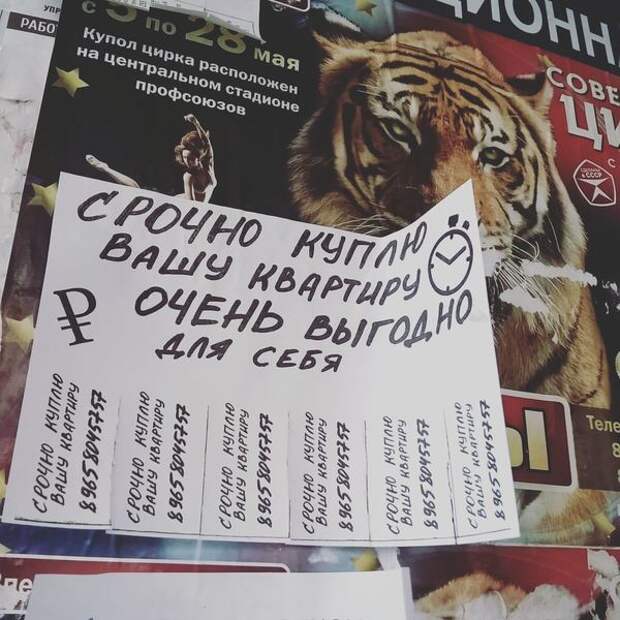 УПР
РАБО
с 5 по 28 мая
Купол цирка расположен
на центральном стадионе
профсоюзов
ЦИОНН
СОВЕ
ЦИ
СДЕЛАНО
в СССР
С
СРОЧНО КУПЛЮ
ВАШУ КВАРТИРУ
₽ ОЧЕНЬ ВЫГОДНО
ДЛЯ СЕБЯ
Ы
Теле
8
СРОЧНО КУПЛЮ
ВАШУ КВАРТИРУ
89658045757
СРОЧНО КУПЛЮ
ВАШУ КВАРТИРУ
89658045757
СРОЧНО КУПЛЮ
ВАШУ КВАРТИРУ
89658045757
СРОЧНО КУПЛЮ
ВАШУ КВАРТИРУ
89658045757
СРОЧНО КУПЛЮ
ВАШУ КВАРТИРУ
89658045757
СРОЧНО КУПЛЮ
ВАШУ КВАРТИРУ
89658045757